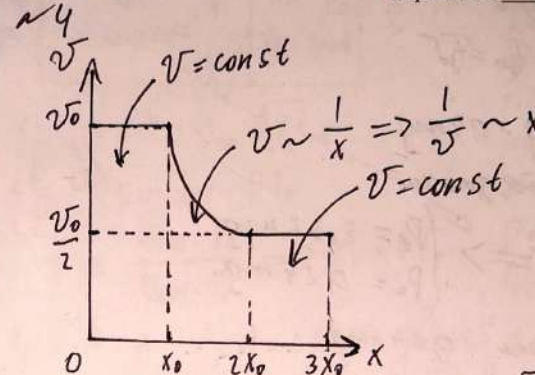 ~4
v
v = const
v₀
v ~ 1/x => 1/v ~ x
v = const
v₀/2
0 x₀ 2x₀ 3x₀ x